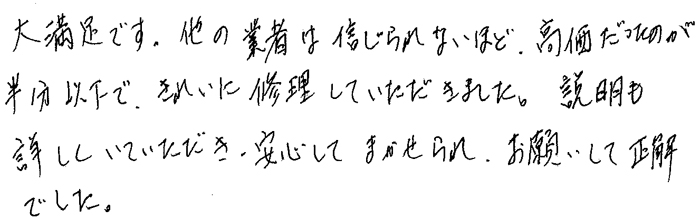 大満足です。他の業者は信じられないほど、高価だったのが
半分以下で、きれいに修理していただきました。説明も
詳しくいていただき、安心してまかせられ、お願いして正解
でした。